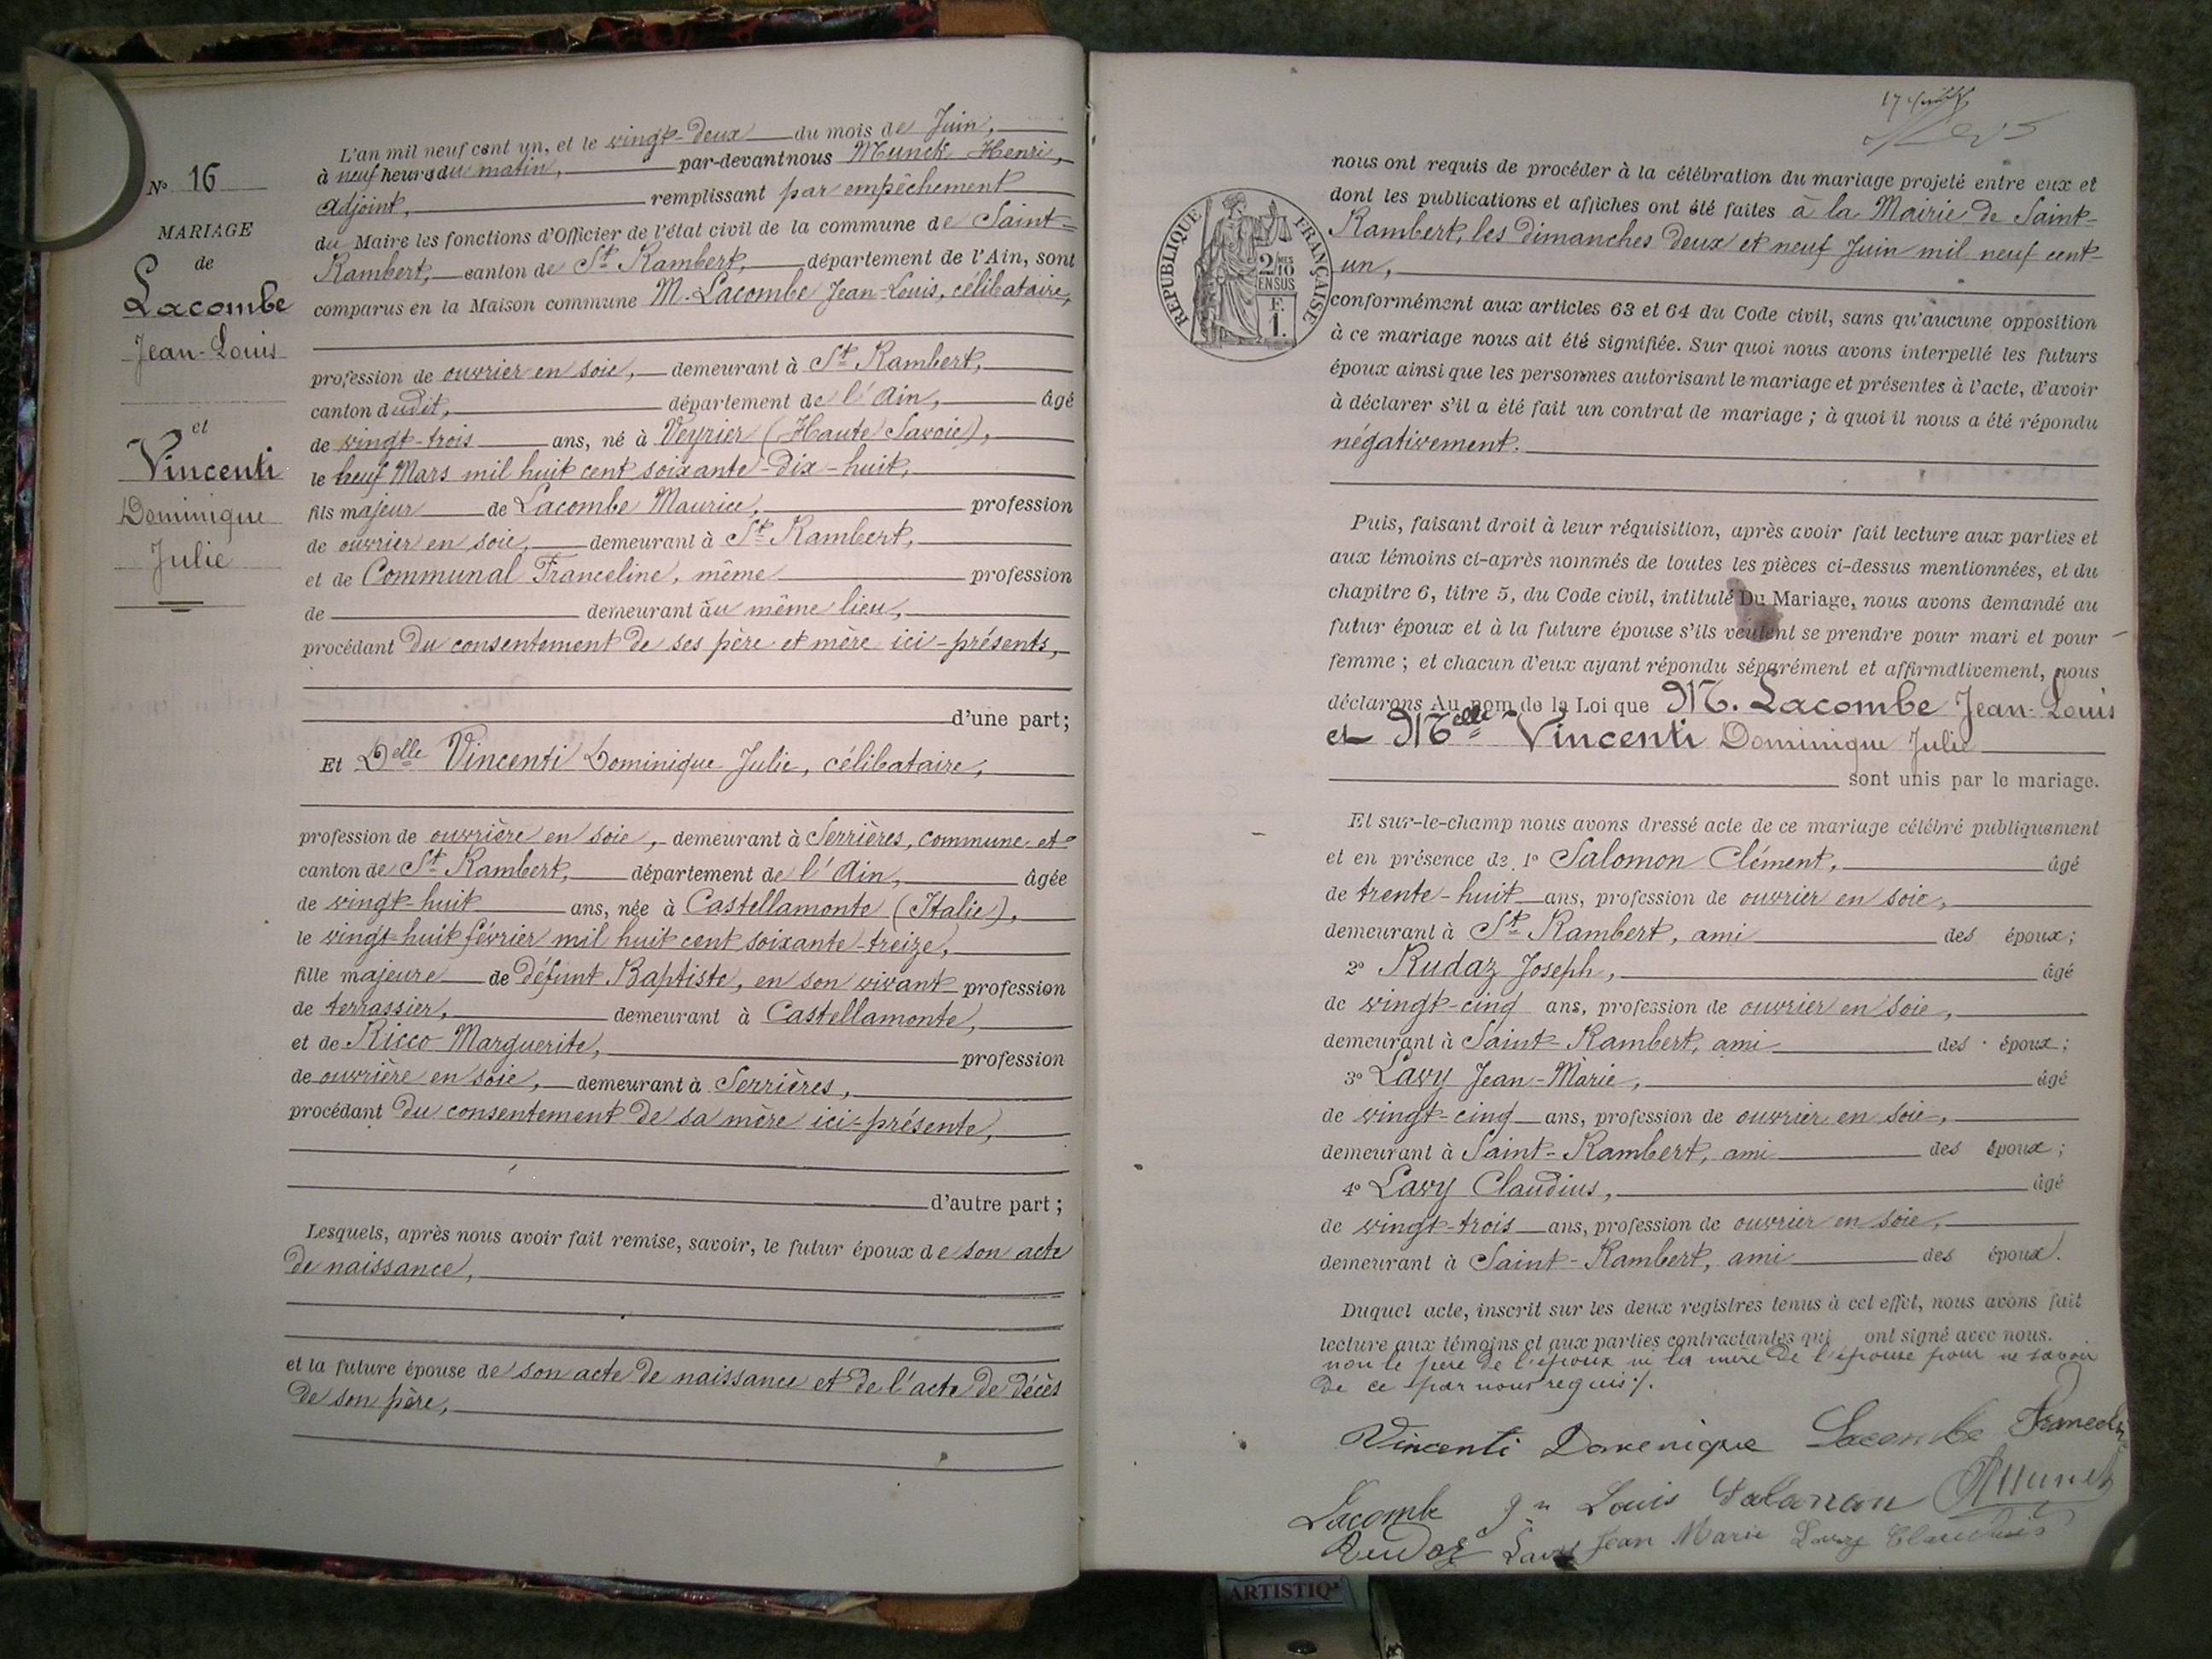 N° 16
MARIAGE
de
Lacombe
Jean-Louis
et
Vincenti
Dominique
Julie
L'an mil neuf cent un, et le vingt-deux du mois de Juin,
à neuf heures du matin, par-devant nous Munck Henri,
adjoint, remplissant par empêchement
du Maire les fonctions d'Officier de l'état civil de la commune de Saint-
Rambert, canton de St Rambert, département de l'Ain, sont
comparus en la Maison commune M. Lacombe Jean-Louis, célibataire,
profession de ouvrier en soie, demeurant à St Rambert,
canton dudit, département de l'Ain, âgé
de vingt-trois ans, né à Veyrier (Haute Savoie),
le neuf Mars mil huit cent soixante-dix-huit,
fils majeur de Lacombe Maurice, profession
de ouvrier en soie, demeurant à St Rambert,
et de Communal Franceline, même profession
de demeurant au même lieu,
procédant du consentement de ses père et mère ici-présents,
d'une part;
Et Delle Vincenti Dominique Julie, célibataire,
profession de ouvrière en soie, demeurant à Serrières, commune et
canton de St Rambert, département de l'Ain, âgée
de vingt-huit ans, née à Castellamonte (Italie),
le vingt-huit février mil huit cent soixante-treize,
fille majeure de défunt Baptiste, en son vivant profession
de terrassier, demeurant à Castellamonte,
et de Ricco Marguerite, profession
de ouvrière en soie, demeurant à Serrières,
procédant du consentement de sa mère ici-présente,
d'autre part;
Lesquels, après nous avoir fait remise, savoir, le futur époux de son acte
de naissance,
et la future épouse de son acte de naissance et de l'acte de décès
de son père,
RÉPUBLIQUE FRANÇAISE
2/10 MES
EN SUS
F.
1.
nous ont requis de procéder à la célébration du mariage projeté entre eux et
dont les publications et affiches ont été faites à la Mairie de Saint-
Rambert, les dimanches deux et neuf Juin mil neuf cent
un,
conformément aux articles 63 et 64 du Code civil, sans qu'aucune opposition
à ce mariage nous ait été signifiée. Sur quoi nous avons interpellé les futurs
époux ainsi que les personnes autorisant le mariage et présentes à l'acte, d'avoir
à déclarer s'il a été fait un contrat de mariage; à quoi il nous a été répondu
négativement.
Puis, faisant droit à leur réquisition, après avoir fait lecture aux parties et
aux témoins ci-après nommés de toutes les pièces ci-dessus mentionnées, et du
chapitre 6, titre 5, du Code civil, intitulé Du Mariage, nous avons demandé au
futur époux et à la future épouse s'ils veulent se prendre pour mari et pour
femme; et chacun d'eux ayant répondu séparément et affirmativement, nous
déclarons Au nom de la Loi que M. Lacombe Jean-Louis
et Melle Vincenti Dominique Julie
sont unis par le mariage.
Et sur-le-champ nous avons dressé acte de ce mariage célébré publiquement
et en présence de 1° Salomon Clément, âgé
de trente-huit ans, profession de ouvrier en soie,
demeurant à St Rambert, ami des époux;
2° Rudaz Joseph, âgé
de vingt-cinq ans, profession de ouvrier en soie,
demeurant à Saint-Rambert, ami des époux;
3° Lavy Jean-Marie, âgé
de vingt-cinq ans, profession de ouvrier en soie,
demeurant à Saint-Rambert, ami des époux;
4° Lavy Claudius, âgé
de vingt-trois ans, profession de ouvrier en soie,
demeurant à Saint-Rambert, ami des époux.
Duquel acte, inscrit sur les deux registres tenus à cet effet, nous avons fait
lecture aux témoins et aux parties contractantes qui ont signé avec nous.
non le père de l'époux ni la mère de l'épouse pour ne savoir
de ce par nous requis ./.
Vincenti Domenique Lacombe Franceline
Lacombe Jn Louis Salomon Munck
Rudaz Lavy Jean Marie Lavy Claudius
ARTISTIQ